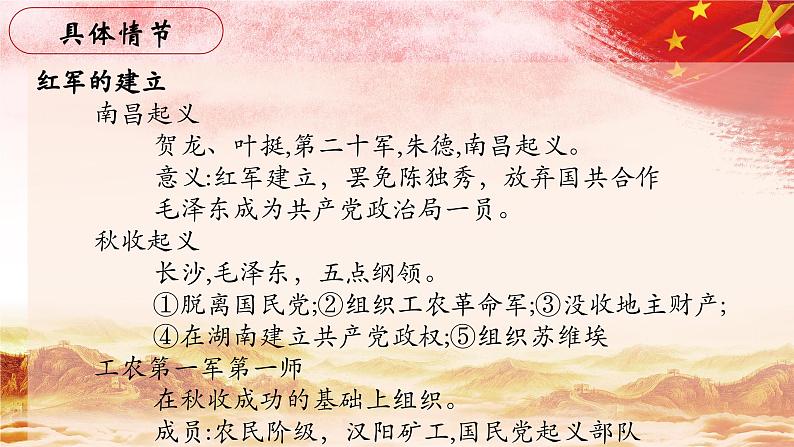 具体情节
红军的建立
南昌起义
贺龙、叶挺,第二十军,朱德,南昌起义。
意义:红军建立，罢免陈独秀，放弃国共合作
毛泽东成为共产党政治局一员。
秋收起义
长沙,毛泽东，五点纲领。
①脱离国民党;②组织工农革命军;③没收地主财产;
④在湖南建立共产党政权;⑤组织苏维埃
工农第一军第一师
在秋收成功的基础上组织。
成员:农民阶级，汉阳矿工,国民党起义部队